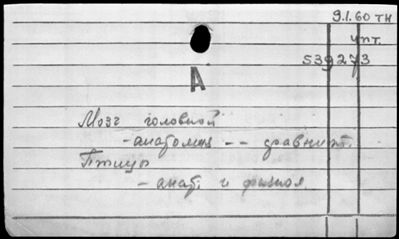 9.1.60 тн
чпт.
539273
А
Мозг головной
-анатомия -- сравнит.
Птицы
-анат. и физиол.